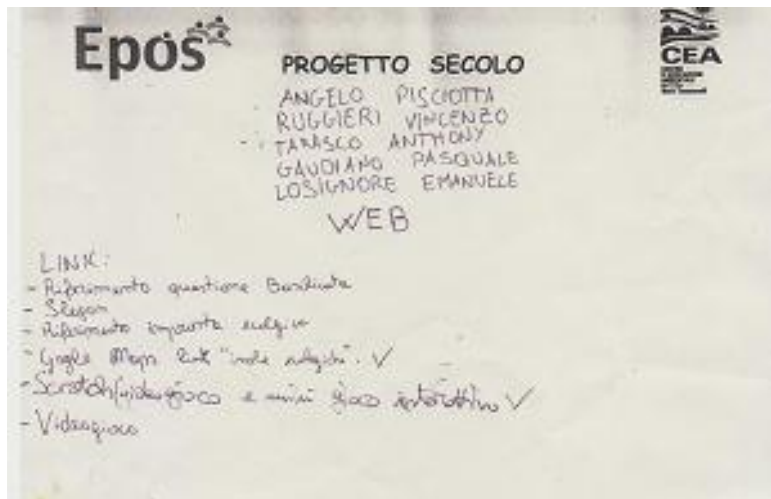 Epos
CEA
PROGETTO SECOLO
ANGELO PISCIOTTA
RUGGIERI VINCENZO
TARASCO ANTHONY
GAUDIANO PASQUALE
LOSIGNORE EMANUELE
WEB
LINK:
- Riferimento questione Basilicata
- Slogan
- Riferimento impronta
- Google Maps link "isole ✓
- Scratch(videogioco e mini gioco interattivo ✓
- Videogioco